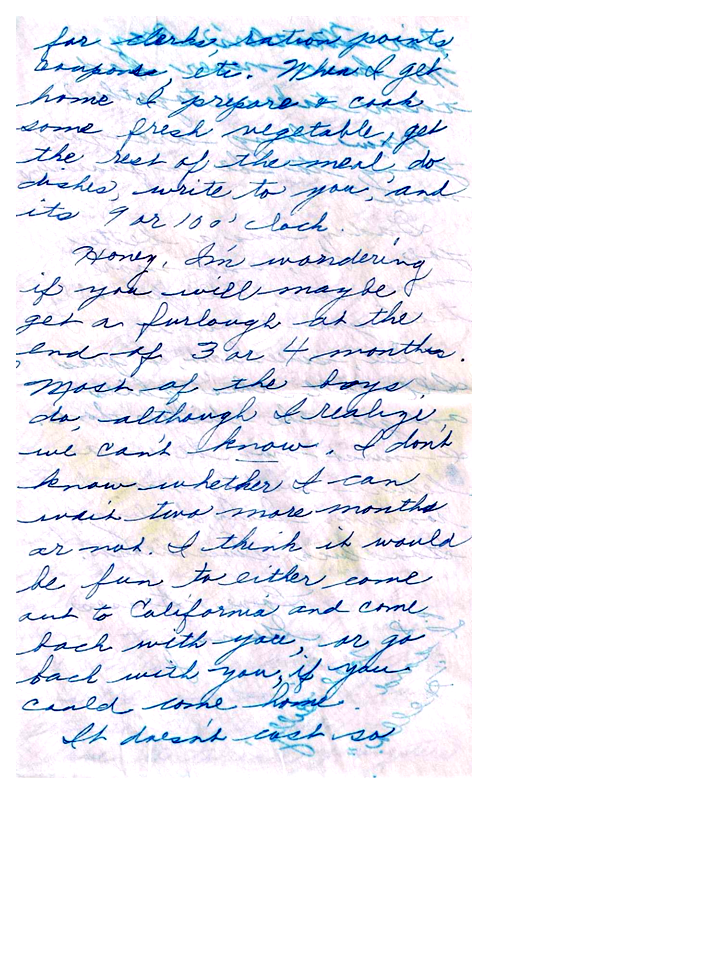 for clerks, ration points,
coupons, etc. When I get
home I prepare & cook
some fresh vegetable, get
the rest of the meal, do
dishes, write to you, and
its 9 or 10 o'clock.
Honey, I'm wondering
if you will maybe
get a furlough at the
end of 3 or 4 months.
Most of the boys
do, although I realize
we can't know. I don't
know whether I can
wait two more months
or not. I think it would
be fun to either come
out to California and come
back with you, or go
back with you, if you
could come home.
It doesn't cost so